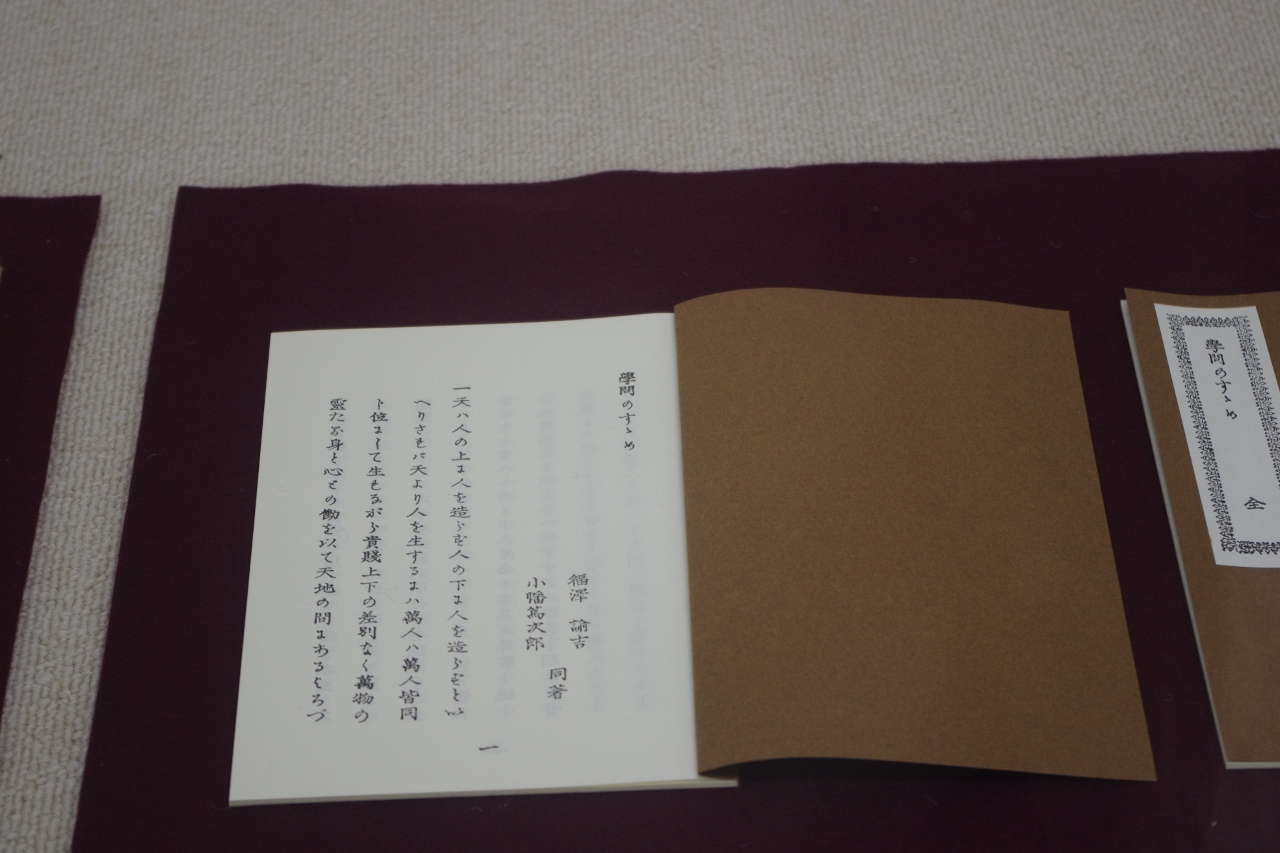 學問のすゝめ
福澤 諭吉
小幡篤次郎
同著
一天ハ人の上に人を造らず人の下に人を造らずとい
へりされバ天より人を生ずるにハ萬人ハ萬人皆同
じ位にして生れながら貴賤上下の差別なく萬物の
靈たる身と心との働を以て天地の間にあるよろづ
一
學問のすゝめ
全